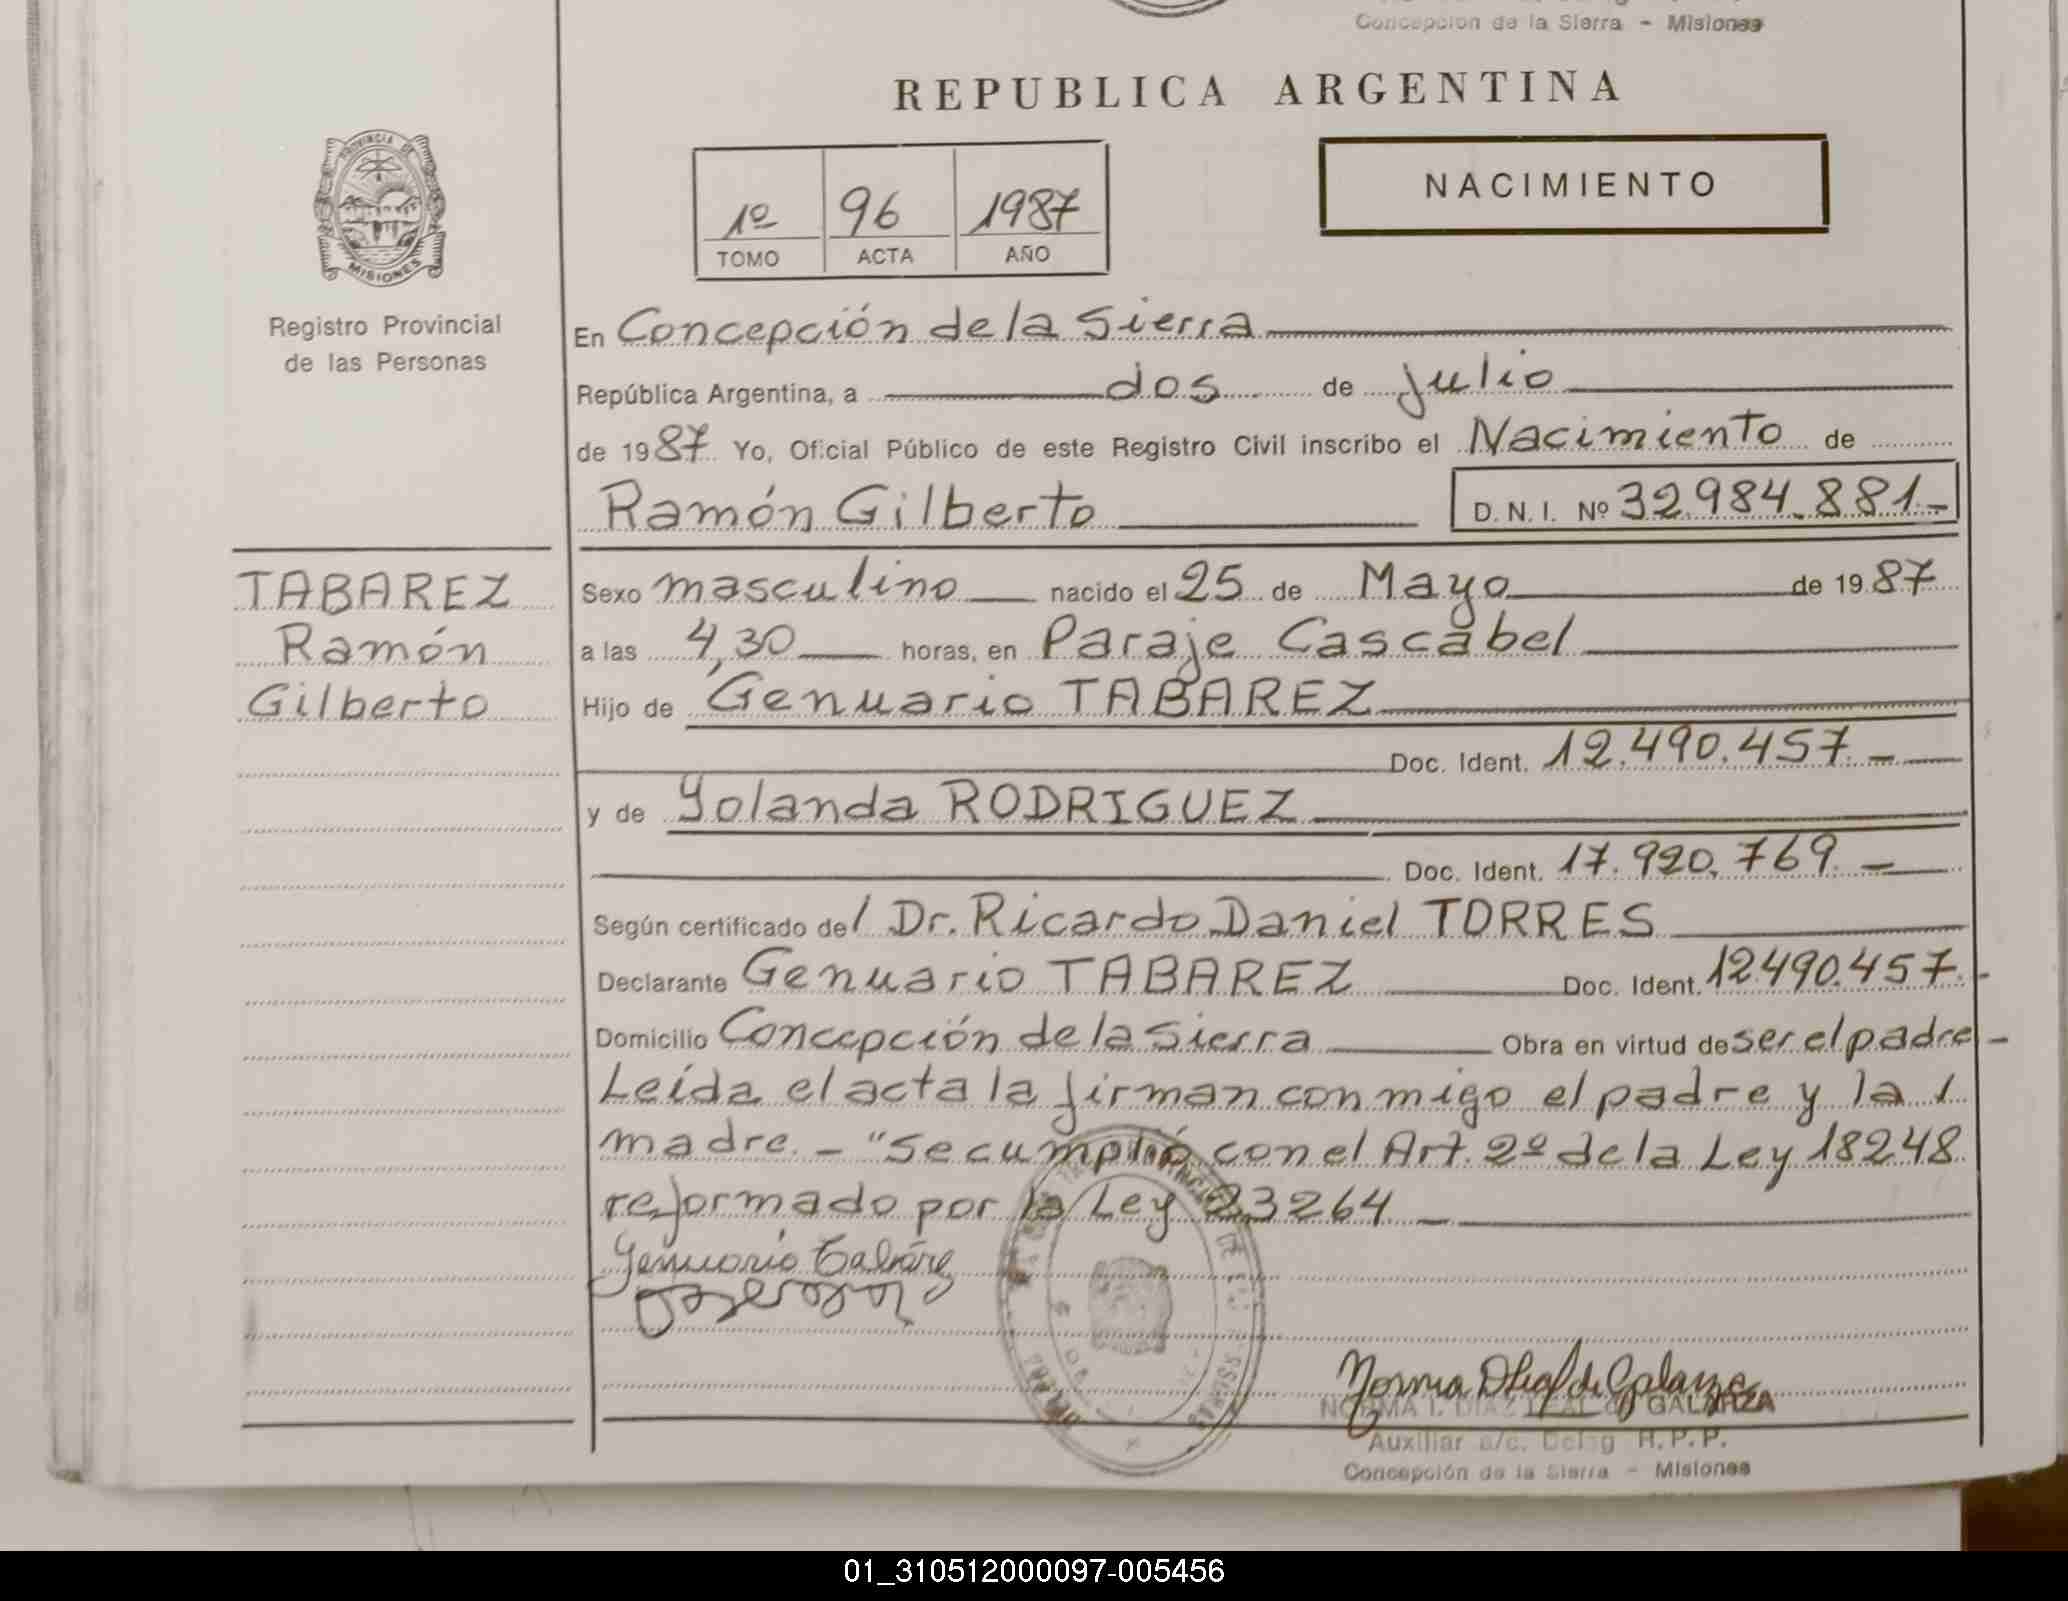 Concepción de la Sierra - Misiones
REPUBLICA ARGENTINA
PROVINCIA DE
MISIONES
Registro Provincial
de las Personas
1º 96 1987
TOMO ACTA AÑO
NACIMIENTO
En Concepción de la Sierra
República Argentina, a dos de julio
de 1987 Yo, Oficial Público de este Registro Civil inscribo el Nacimiento de
Ramón Gilberto D.N.I. Nº 32.984.881.-
TABAREZ
Ramón
Gilberto
Sexo masculino nacido el 25 de Mayo de 1987
a las 4,30 horas, en Paraje Cascabel
Hijo de Genuario TABAREZ
Doc. Ident. 12.490.457.-
y de Yolanda RODRIGUEZ
Doc. Ident. 17.920.769.-
Según certificado del Dr. Ricardo Daniel TORRES
Declarante Genuario TABAREZ Doc. Ident. 12490.457.-
Domicilio Concepción de la Sierra Obra en virtud de ser el padre-
Leída el acta la firman conmigo el padre y la
madre.- "Se cumplió con el Art. 2º de la Ley 18248
reformado por la Ley 23264
Genuario Tabárez
NORMA I. DIAZ LEAL de GALARZA
Auxiliar a/c. Deleg R.P.P.
Concepción de la Sierra - Misiones
01_310512000097-005456